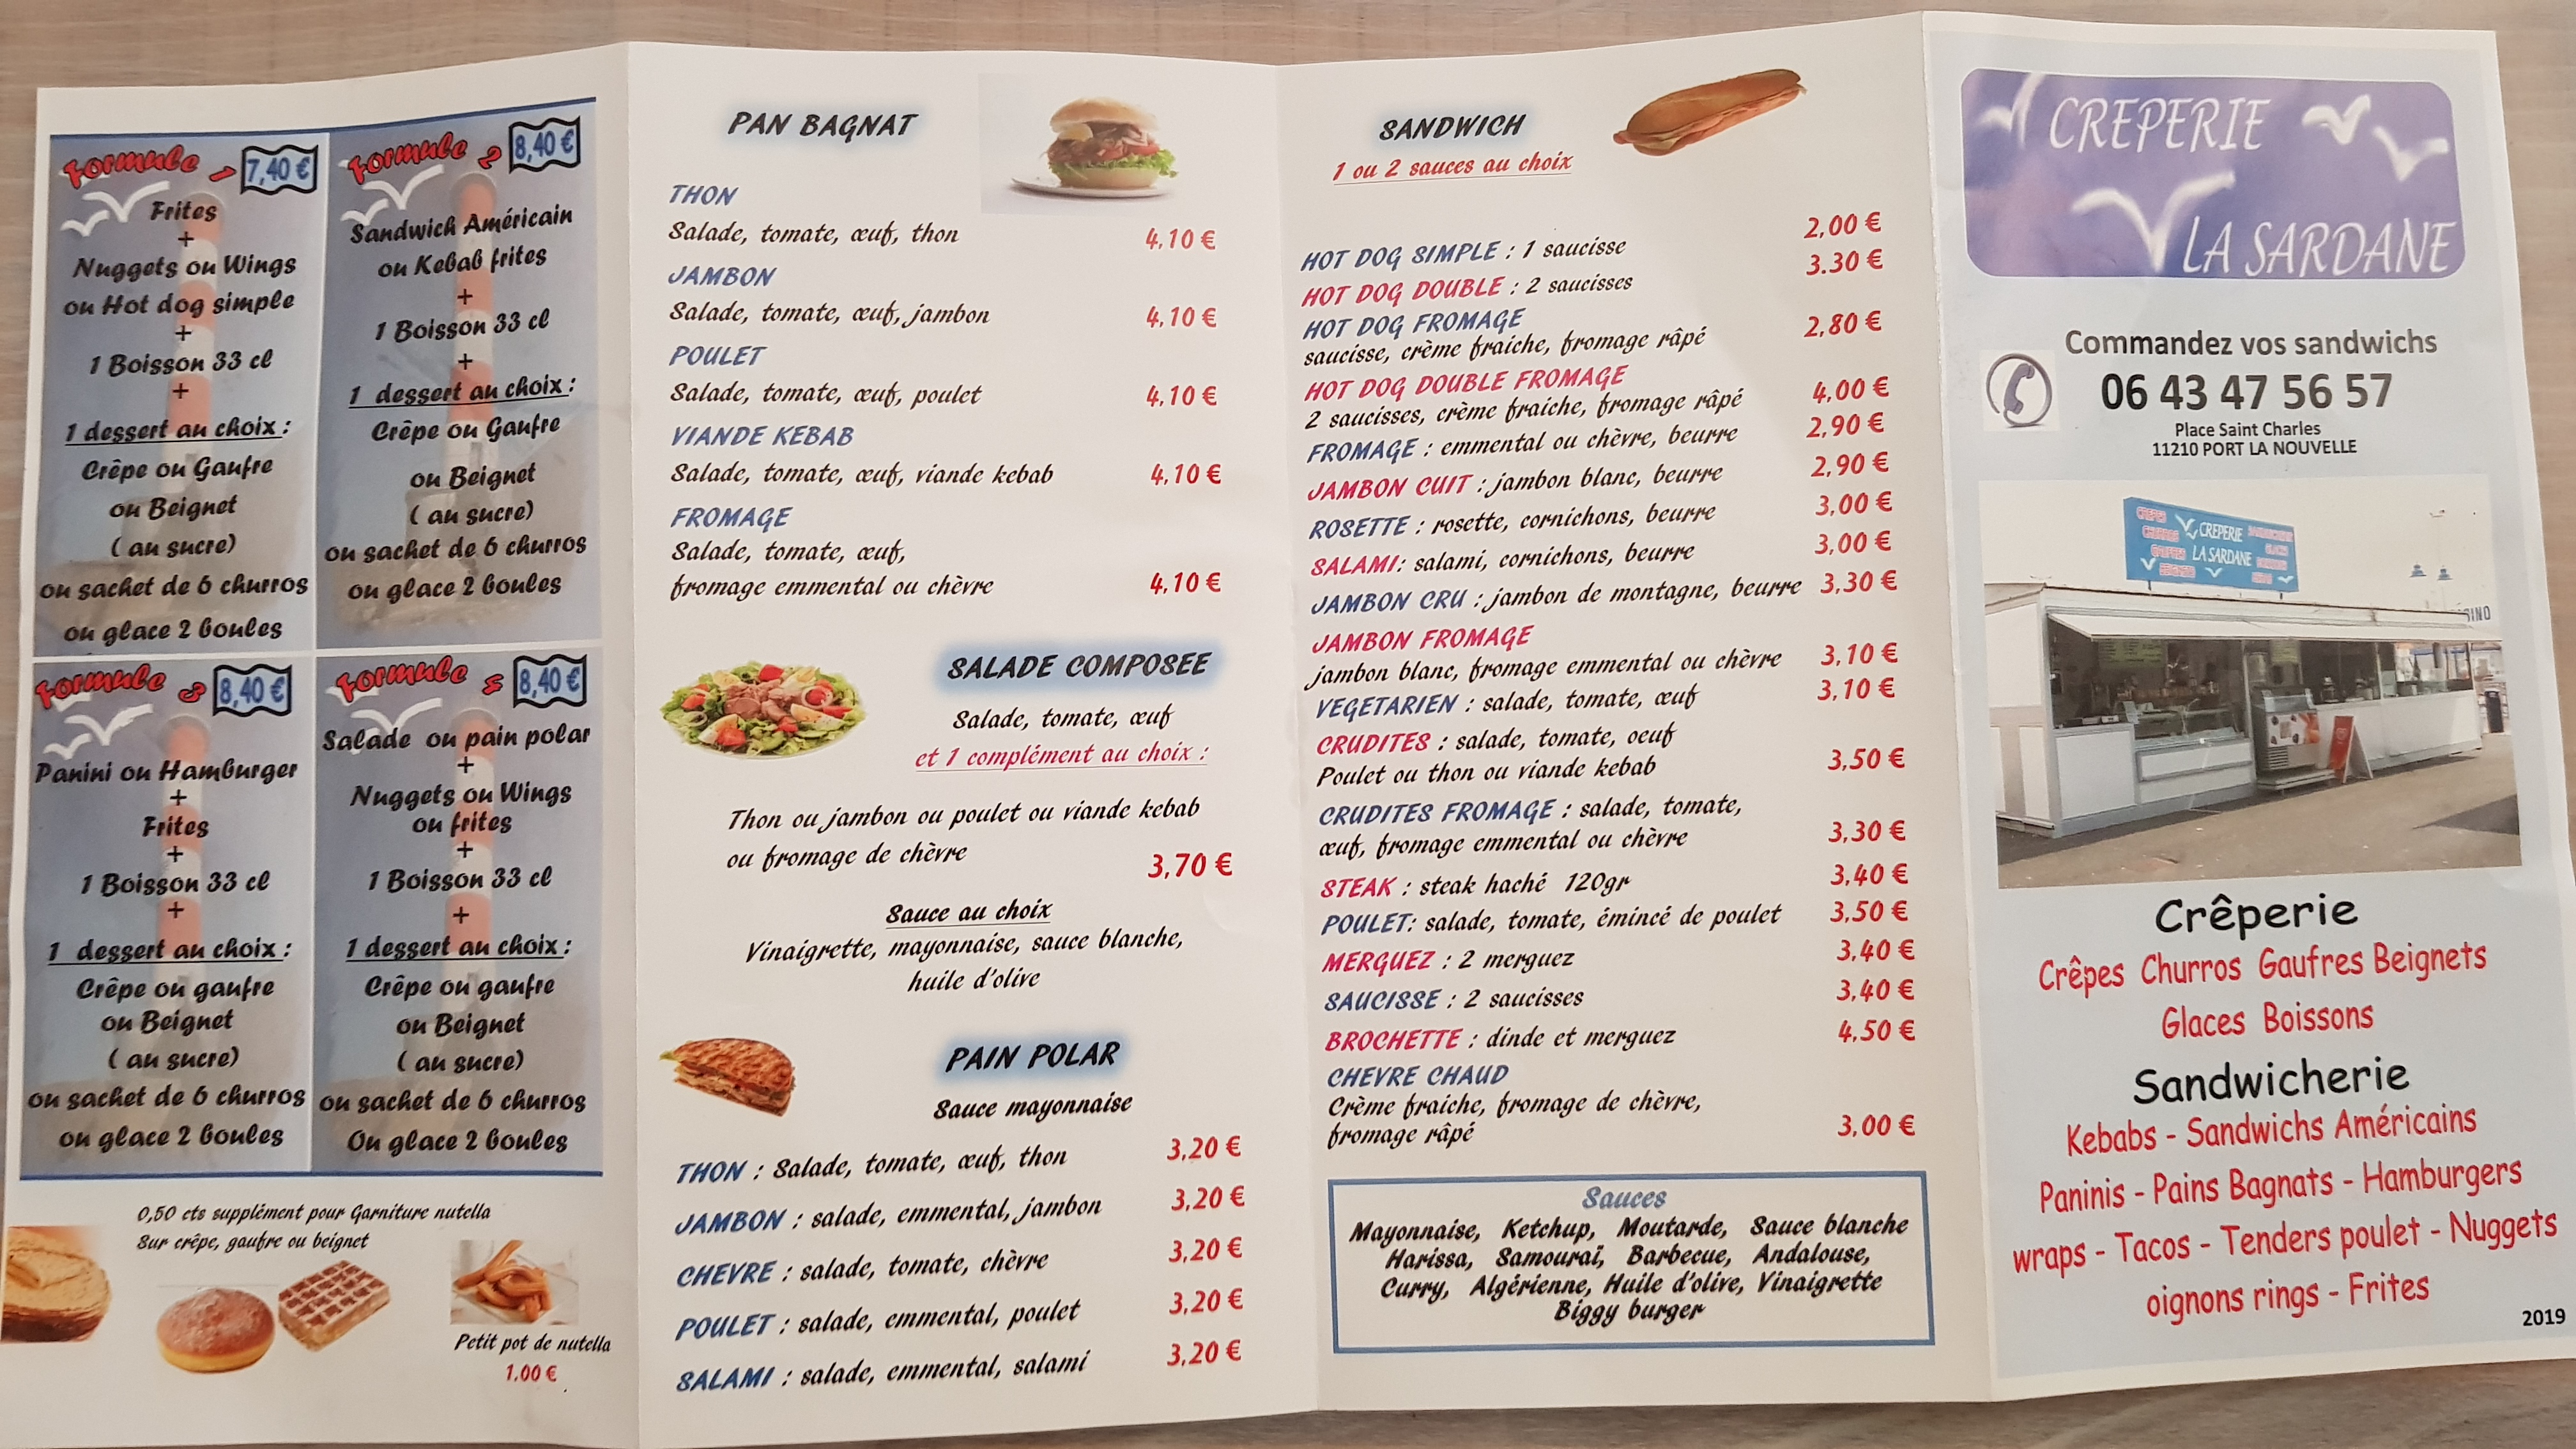 Formule 1 7,40 €
Frites
+
Nuggets ou Wings
ou Hot dog simple
+
1 Boisson 33 cl
+
1 dessert au choix :
Crêpe ou Gaufre
ou Beignet
( au sucre)
ou sachet de 6 churros
ou glace 2 boules
Formule 2 8,40 €
Sandwich Américain
ou Kebab frites
+
1 Boisson 33 cl
+
1 dessert au choix :
Crêpe ou Gaufre
ou Beignet
( au sucre)
ou sachet de 6 churros
ou glace 2 boules
Formule 3 8,40 €
Panini ou Hamburger
+
Frites
+
1 Boisson 33 cl
+
1 dessert au choix :
Crêpe ou gaufre
ou Beignet
( au sucre)
ou sachet de 6 churros
ou glace 2 boules
Formule 4 8,40 €
Salade ou pain polar
+
Nuggets ou Wings
ou frites
+
1 Boisson 33 cl
+
1 dessert au choix :
Crêpe ou gaufre
ou Beignet
( au sucre)
ou sachet de 6 churros
Ou glace 2 boules
0,50 cts supplément pour Garniture nutella
Sur crêpe, gaufre ou beignet
Petit pot de nutella
1.00 €
PAN BAGNAT
THON
Salade, tomate, œuf, thon 4,10 €
JAMBON
Salade, tomate, œuf, jambon 4,10 €
POULET
Salade, tomate, œuf, poulet 4,10 €
VIANDE KEBAB
Salade, tomate, œuf, viande kebab 4,10 €
FROMAGE
Salade, tomate, œuf,
fromage emmental ou chèvre 4,10 €
SALADE COMPOSEE
Salade, tomate, œuf
et 1 complément au choix :
Thon ou jambon ou poulet ou viande kebab
ou fromage de chèvre 3,70 €
Sauce au choix
Vinaigrette, mayonnaise, sauce blanche,
huile d'olive
PAIN POLAR
Sauce mayonnaise
THON : Salade, tomate, œuf, thon 3,20 €
JAMBON : salade, emmental, jambon 3,20 €
CHEVRE : salade, tomate, chèvre 3,20 €
POULET : salade, emmental, poulet 3,20 €
SALAMI : salade, emmental, salami 3,20 €
SANDWICH
1 ou 2 sauces au choix
HOT DOG SIMPLE : 1 saucisse 2,00 €
HOT DOG DOUBLE : 2 saucisses 3.30 €
HOT DOG FROMAGE
saucisse, crème fraiche, fromage râpé 2,80 €
HOT DOG DOUBLE FROMAGE
2 saucisses, crème fraiche, fromage râpé 4,00 €
FROMAGE : emmental ou chèvre, beurre 2,90 €
JAMBON CUIT : jambon blanc, beurre 2,90 €
ROSETTE : rosette, cornichons, beurre 3,00 €
SALAMI: salami, cornichons, beurre 3,00 €
JAMBON CRU : jambon de montagne, beurre 3,30 €
JAMBON FROMAGE
jambon blanc, fromage emmental ou chèvre 3,10 €
VEGETARIEN : salade, tomate, œuf 3,10 €
CRUDITES : salade, tomate, oeuf
Poulet ou thon ou viande kebab 3,50 €
CRUDITES FROMAGE : salade, tomate,
œuf, fromage emmental ou chèvre 3,30 €
STEAK : steak haché 120gr 3,40 €
POULET: salade, tomate, émincé de poulet 3,50 €
MERGUEZ : 2 merguez 3,40 €
SAUCISSE : 2 saucisses 3,40 €
BROCHETTE : dinde et merguez 4,50 €
CHEVRE CHAUD
Crème fraiche, fromage de chèvre,
fromage râpé 3,00 €
Sauces
Mayonnaise, Ketchup, Moutarde, Sauce blanche
Harissa, Samouraï, Barbecue, Andalouse,
Curry, Algérienne, Huile d'olive, Vinaigrette
Biggy burger
CREPERIE
LA SARDANE
Commandez vos sandwichs
06 43 47 56 57
Place Saint Charles
11210 PORT LA NOUVELLE
CREPES
CHURROS
CREPERIE
LA SARDANE
Crêperie
Crêpes Churros Gaufres Beignets
Glaces Boissons
Sandwicherie
Kebabs - Sandwichs Américains
Paninis - Pains Bagnats - Hamburgers
wraps - Tacos - Tenders poulet - Nuggets
oignons rings - Frites
2019